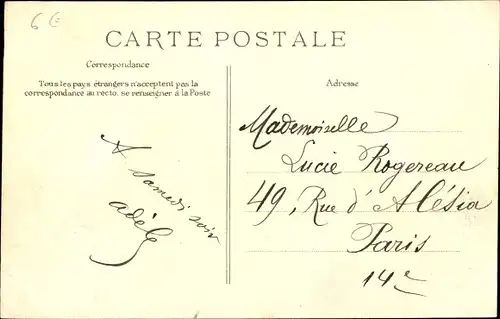 6 €
CARTE POSTALE
Correspondance
Tous les pays étrangers n'acceptent pas la
correspondance au recto, se renseigner à la Poste
A samedi soir
adèle
Adresse
Mademoiselle
Lucie Rogereau
49, Rue d'Alésia
Paris
14e